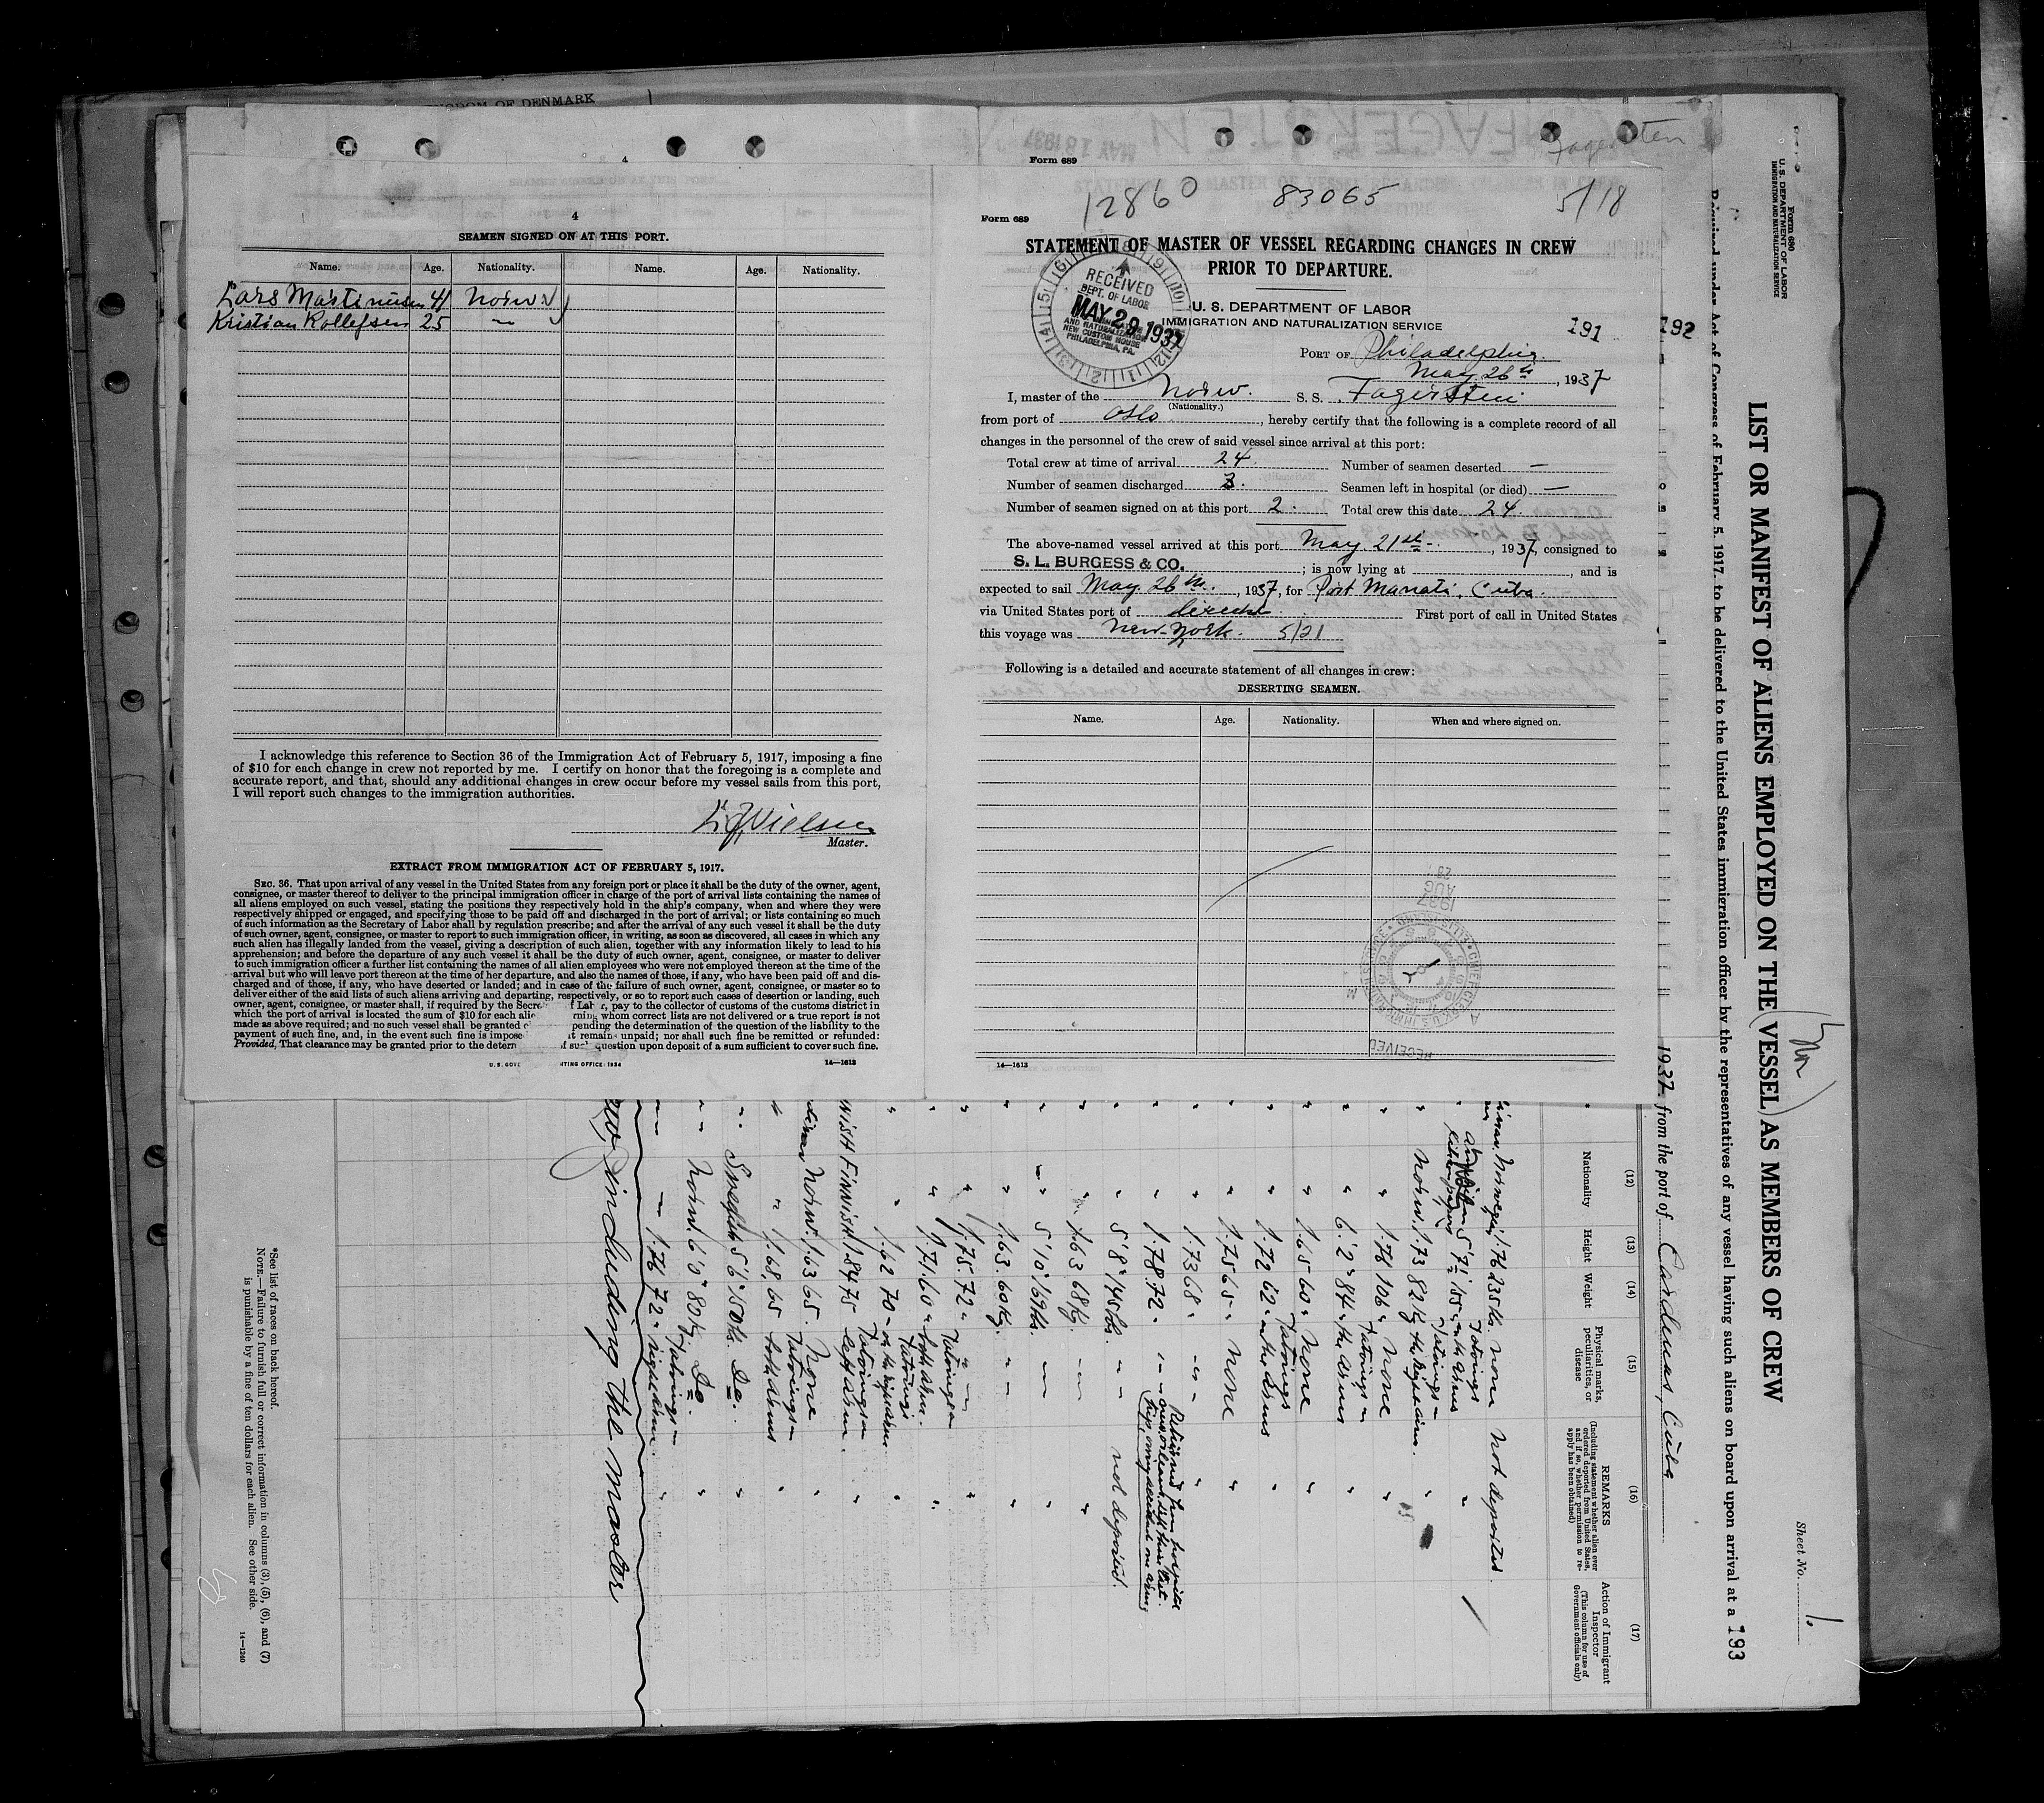 KINGDOM OF DENMARK
4
4
SEAMEN SIGNED ON AT THIS PORT.
Name. Age. Nationality. Name. Age. Nationality.
Lars Martinusen 41 Norw.
Kristian Rollefsen 25 —
I acknowledge this reference to Section 36 of the Immigration Act of February 5, 1917, imposing a fine
of $10 for each change in crew not reported by me. I certify on honor that the foregoing is a complete and
accurate report, and that, should any additional changes in crew occur before my vessel sails from this port,
I will report such changes to the immigration authorities.
Nielsen
Master.
EXTRACT FROM IMMIGRATION ACT OF FEBRUARY 5, 1917.
SEC. 36. That upon arrival of any vessel in the United States from any foreign port or place it shall be the duty of the owner, agent,
consignee, or master thereof to deliver to the principal immigration officer in charge of the port of arrival lists containing the names of
all aliens employed on such vessel, stating the positions they respectively hold in the ship's company, when and where they were
respectively shipped or engaged, and specifying those to be paid off and discharged in the port of arrival; or lists containing so much
of such information as the Secretary of Labor shall by regulation prescribe; and after the arrival of any such vessel it shall be the duty
of such owner, agent, consignee, or master to report to such immigration officer, in writing, as soon as discovered, all cases in which any
such alien has illegally landed from the vessel, giving a description of such alien, together with any information likely to lead to his
apprehension; and before the departure of any such vessel it shall be the duty of such owner, agent, consignee, or master to deliver
to such immigration officer a further list containing the names of all alien employees who were not employed thereon at the time of the
arrival but who will leave port thereon at the time of her departure, and also the names of those, if any, who have been paid off and dis-
charged and of those, if any, who have deserted or landed; and in case of the failure of such owner, agent, consignee, or master so to
deliver either of the said lists of such aliens arriving and departing, respectively, or so to report such cases of desertion or landing, such
owner, agent, consignee, or master shall, if required by the Secre f Labor, pay to the collector of customs of the customs district in
which the port of arrival is located the sum of $10 for each alie rning whom correct lists are not delivered or a true report is not
made as above required; and no such vessel shall be granted c pending the determination of the question of the liability to the
payment of such fine, and, in the event such fine is impose it remain unpaid; nor shall such fine be remitted or refunded:
Provided, That clearance may be granted prior to the determ f such question upon deposit of a sum sufficient to cover such fine.
U. S. GOVE NTING OFFICE: 1934 14—1613
Form 689
Fagersten
Form 689
12860 83065 5/18
STATEMENT OF MASTER OF VESSEL REGARDING CHANGES IN CREW
PRIOR TO DEPARTURE.
RECEIVED
DEPT. OF LABOR
MAY 29 1937
AND NATURALIZATION
NEW CUSTOM HOUSE
PHILADELPHIA, PA.
U. S. DEPARTMENT OF LABOR
IMMIGRATION AND NATURALIZATION SERVICE
191 192
PORT OF Philadelphia.
May 26th, 1937
I, master of the Norw. S. S. Fagersten
(Nationality.)
from port of Oslo, hereby certify that the following is a complete record of all
changes in the personnel of the crew of said vessel since arrival at this port:
Total crew at time of arrival 24. Number of seamen deserted —
Number of seamen discharged Seamen left in hospital (or died) —
Number of seamen signed on at this port 2. Total crew this date 24.
The above-named vessel arrived at this port May 21st, 1937, consigned to
S. L. BURGESS & CO.; is now lying at , and is
expected to sail May 26th., 1937, for Port Manati, Cuba.
via United States port of direct. First port of call in United States
this voyage was New-York. 5/21
Following is a detailed and accurate statement of all changes in crew:
DESERTING SEAMEN.
Name. Age. Nationality. When and where signed on.
1937
AUG
RECEIVED
14—1613
Form 680
U. S. DEPARTMENT OF LABOR
IMMIGRATION AND NATURALIZATION SERVICE
Sheet No. 1.
LIST OR MANIFEST OF ALIENS EMPLOYED ON THE VESSEL AS MEMBERS OF CREW
(Nor)
Required under Act of Congress of February 5, 1917, to be delivered to the United States immigration officer by the representatives of any vessel having such aliens on board upon arrival at a 193
1937 from the port of Cardenas, Cuba
(12) (13) (14) (15) (16) (17)
Nationality Height Weight Physical marks, peculiarities, or disease
REMARKS
(Including statement whether alien ever ordered deported from United States, and if so, whether permission to re-apply has been obtained)
Action of Immigrant Inspector
(This column for use of Government officials only)
Norwegian 1.76 235 lbs. none Not deported.
5'7" 155 " Tatoings on the arms "
Norw. 1.73 82 kg Tatoings the right arm. "
" 1.76 106 " None "
" 6'2" 84 " Tatoings the arms "
" 1.65 60 " None "
" 1.72 62 " Tatoings the arms "
" 1.75 65 " None "
" 1.73 68 " "
" 1.78 72 "
" 5'8" 145 lbs. not deported.
" 1.63 68 kg. "
5'10" 169 lbs. "
" 1.63 60 kg. "
" 1.75 72 " "
" 1.71 60 " Tatoings both arm. "
" 1.62 70 " Tatoings on the right arm "
FINNISH FINNISH 1.84 75 Tatoings left arm. "
Norw. 1.63 65 None "
" 1.68 65 Tatoings both arms "
Swedish 5'6" 150 lbs. Do. "
Norw. 6'0" 80 kg. Do. "
1.76 72 " Tatoings right arm. "
including the master
*See list of races on back hereof.
NOTE.—Failure to furnish full or correct information in columns (3), (5), (6), and (7)
is punishable by a fine of ten dollars for each alien. See other side.
14—1240